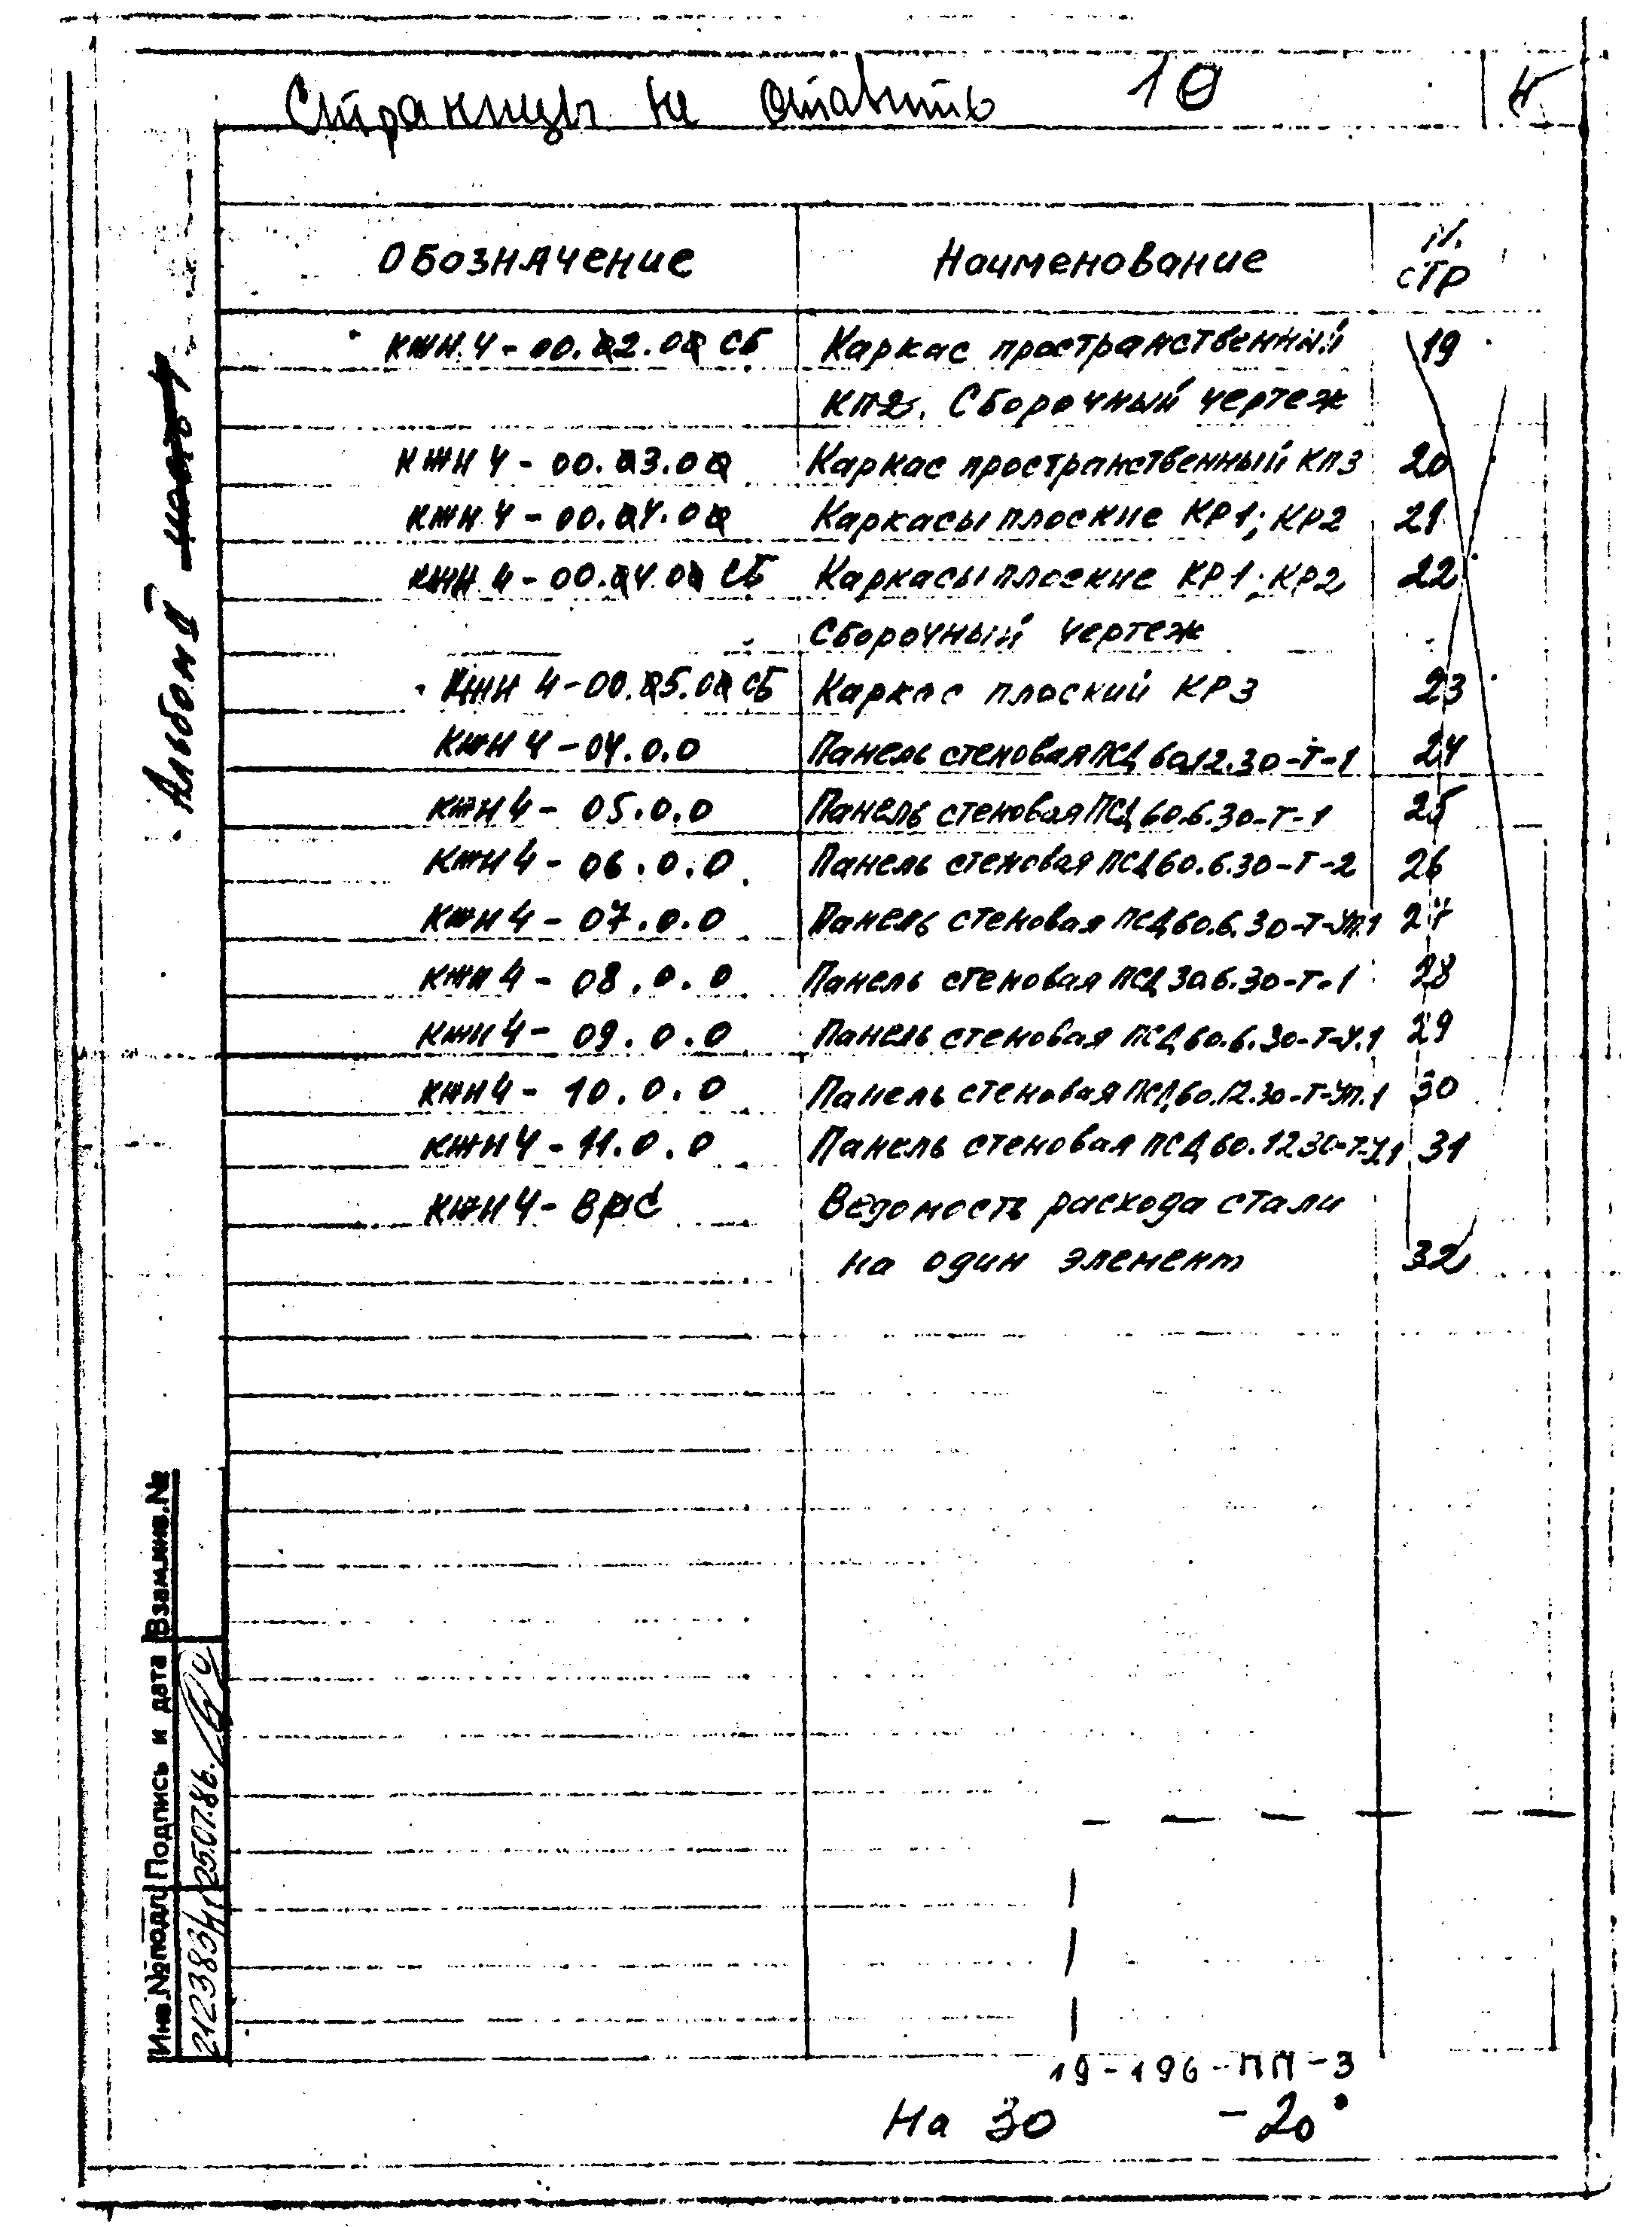 Страницы не ставить 10
4
Обозначение Наименование N.
стр
КЖН 4 - 00.02.00 СБ Каркас пространственный 19
КП2. Сборочный чертеж
КЖН 4 - 00.03.00 Каркас пространственный КП3 20
КЖН 4 - 00.04.00 Каркасы плоские КР1; КР2 21
КЖН 4 - 00.04.00 СБ Каркасы плоские КР1; КР2 22
Сборочный чертеж
КЖН 4 - 00.05.00 СБ Каркас плоский КР3 23
КЖН 4 - 04.0.0 Панель стеновая ПСД 60.12.30-Т-1 24
КЖН 4 - 05.0.0 Панель стеновая ПСД 60.6.30-Т-1 25
КЖН 4 - 06.0.0 Панель стеновая ПСД 60.6.30-Т-2 26
КЖН 4 - 07.0.0 Панель стеновая ПСД 60.6.30-Т-УП.1 27
КЖН 4 - 08.0.0 Панель стеновая ПСД 30.6.30-Т-1 28
КЖН 4 - 09.0.0 Панель стеновая ПСД 60.6.30-Т-У.1 29
КЖН 4 - 10.0.0 Панель стеновая ПСД 60.12.30-Т-УП.1 30
КЖН 4 - 11.0.0 Панель стеновая ПСД 60.12 30-Т-У1 31
КЖН 4 - ВРС Ведомость расхода стали
на один элемент 32
Альбом II
Инв.№подл Подпись и дата Взам.инв.№
25.07.86.
19-196-ПП-3
На 30 -20°